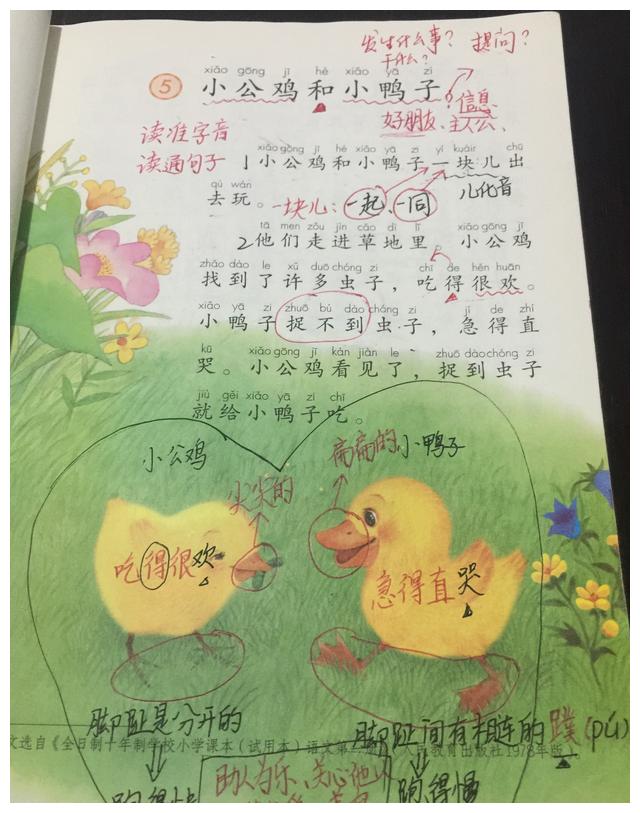 发生什么事？ 提问？
干什么？
xiǎo gōng jī hé xiǎo yā zi
5 小公鸡和小鸭子
信息
好朋友、主人公、
读准字音
读通句子
xiǎo gōng jī hé xiǎo yā zi yí kuàir chū
1小公鸡和小鸭子一块儿出
qù wán
去玩。
一块儿：一起、一同
儿化音
tā men zǒu jìn cǎo dì lǐ xiǎo gōng jī
2他们走进草地里。小公鸡
zhǎo dào le xǔ duō chóng zi chī de hěn huān
找到了许多虫子，吃得很欢。
xiǎo yā zi zhuō bú dào chóng zi jí de zhí
小鸭子捉不到虫子，急得直
kū xiǎo gōng jī kàn jiàn le zhuō dào chóng zi
哭。小公鸡看见了，捉到虫子
jiù gěi xiǎo yā zi chī
就给小鸭子吃。
小公鸡
扁扁的小鸭子
尖尖的
吃得很欢
急得直哭
脚趾是分开的
脚趾间有相连的蹼(pǔ)
文选自《全日制十年制学校小学课本（试用本）语文第
人民教育出版社1978年版）
跑得快
助人为乐、关心他人
跑得慢